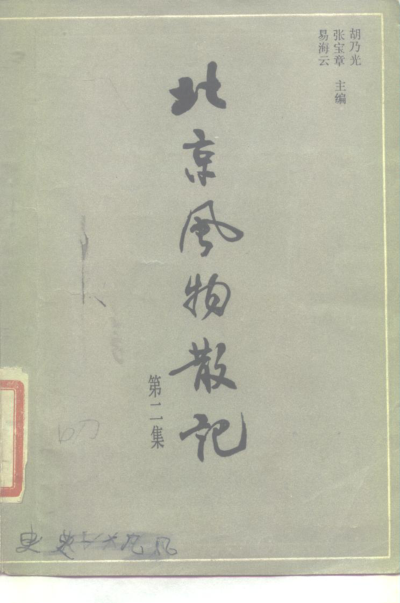 胡乃光
张宝章 主编
易海云
北京风物散记
第二集